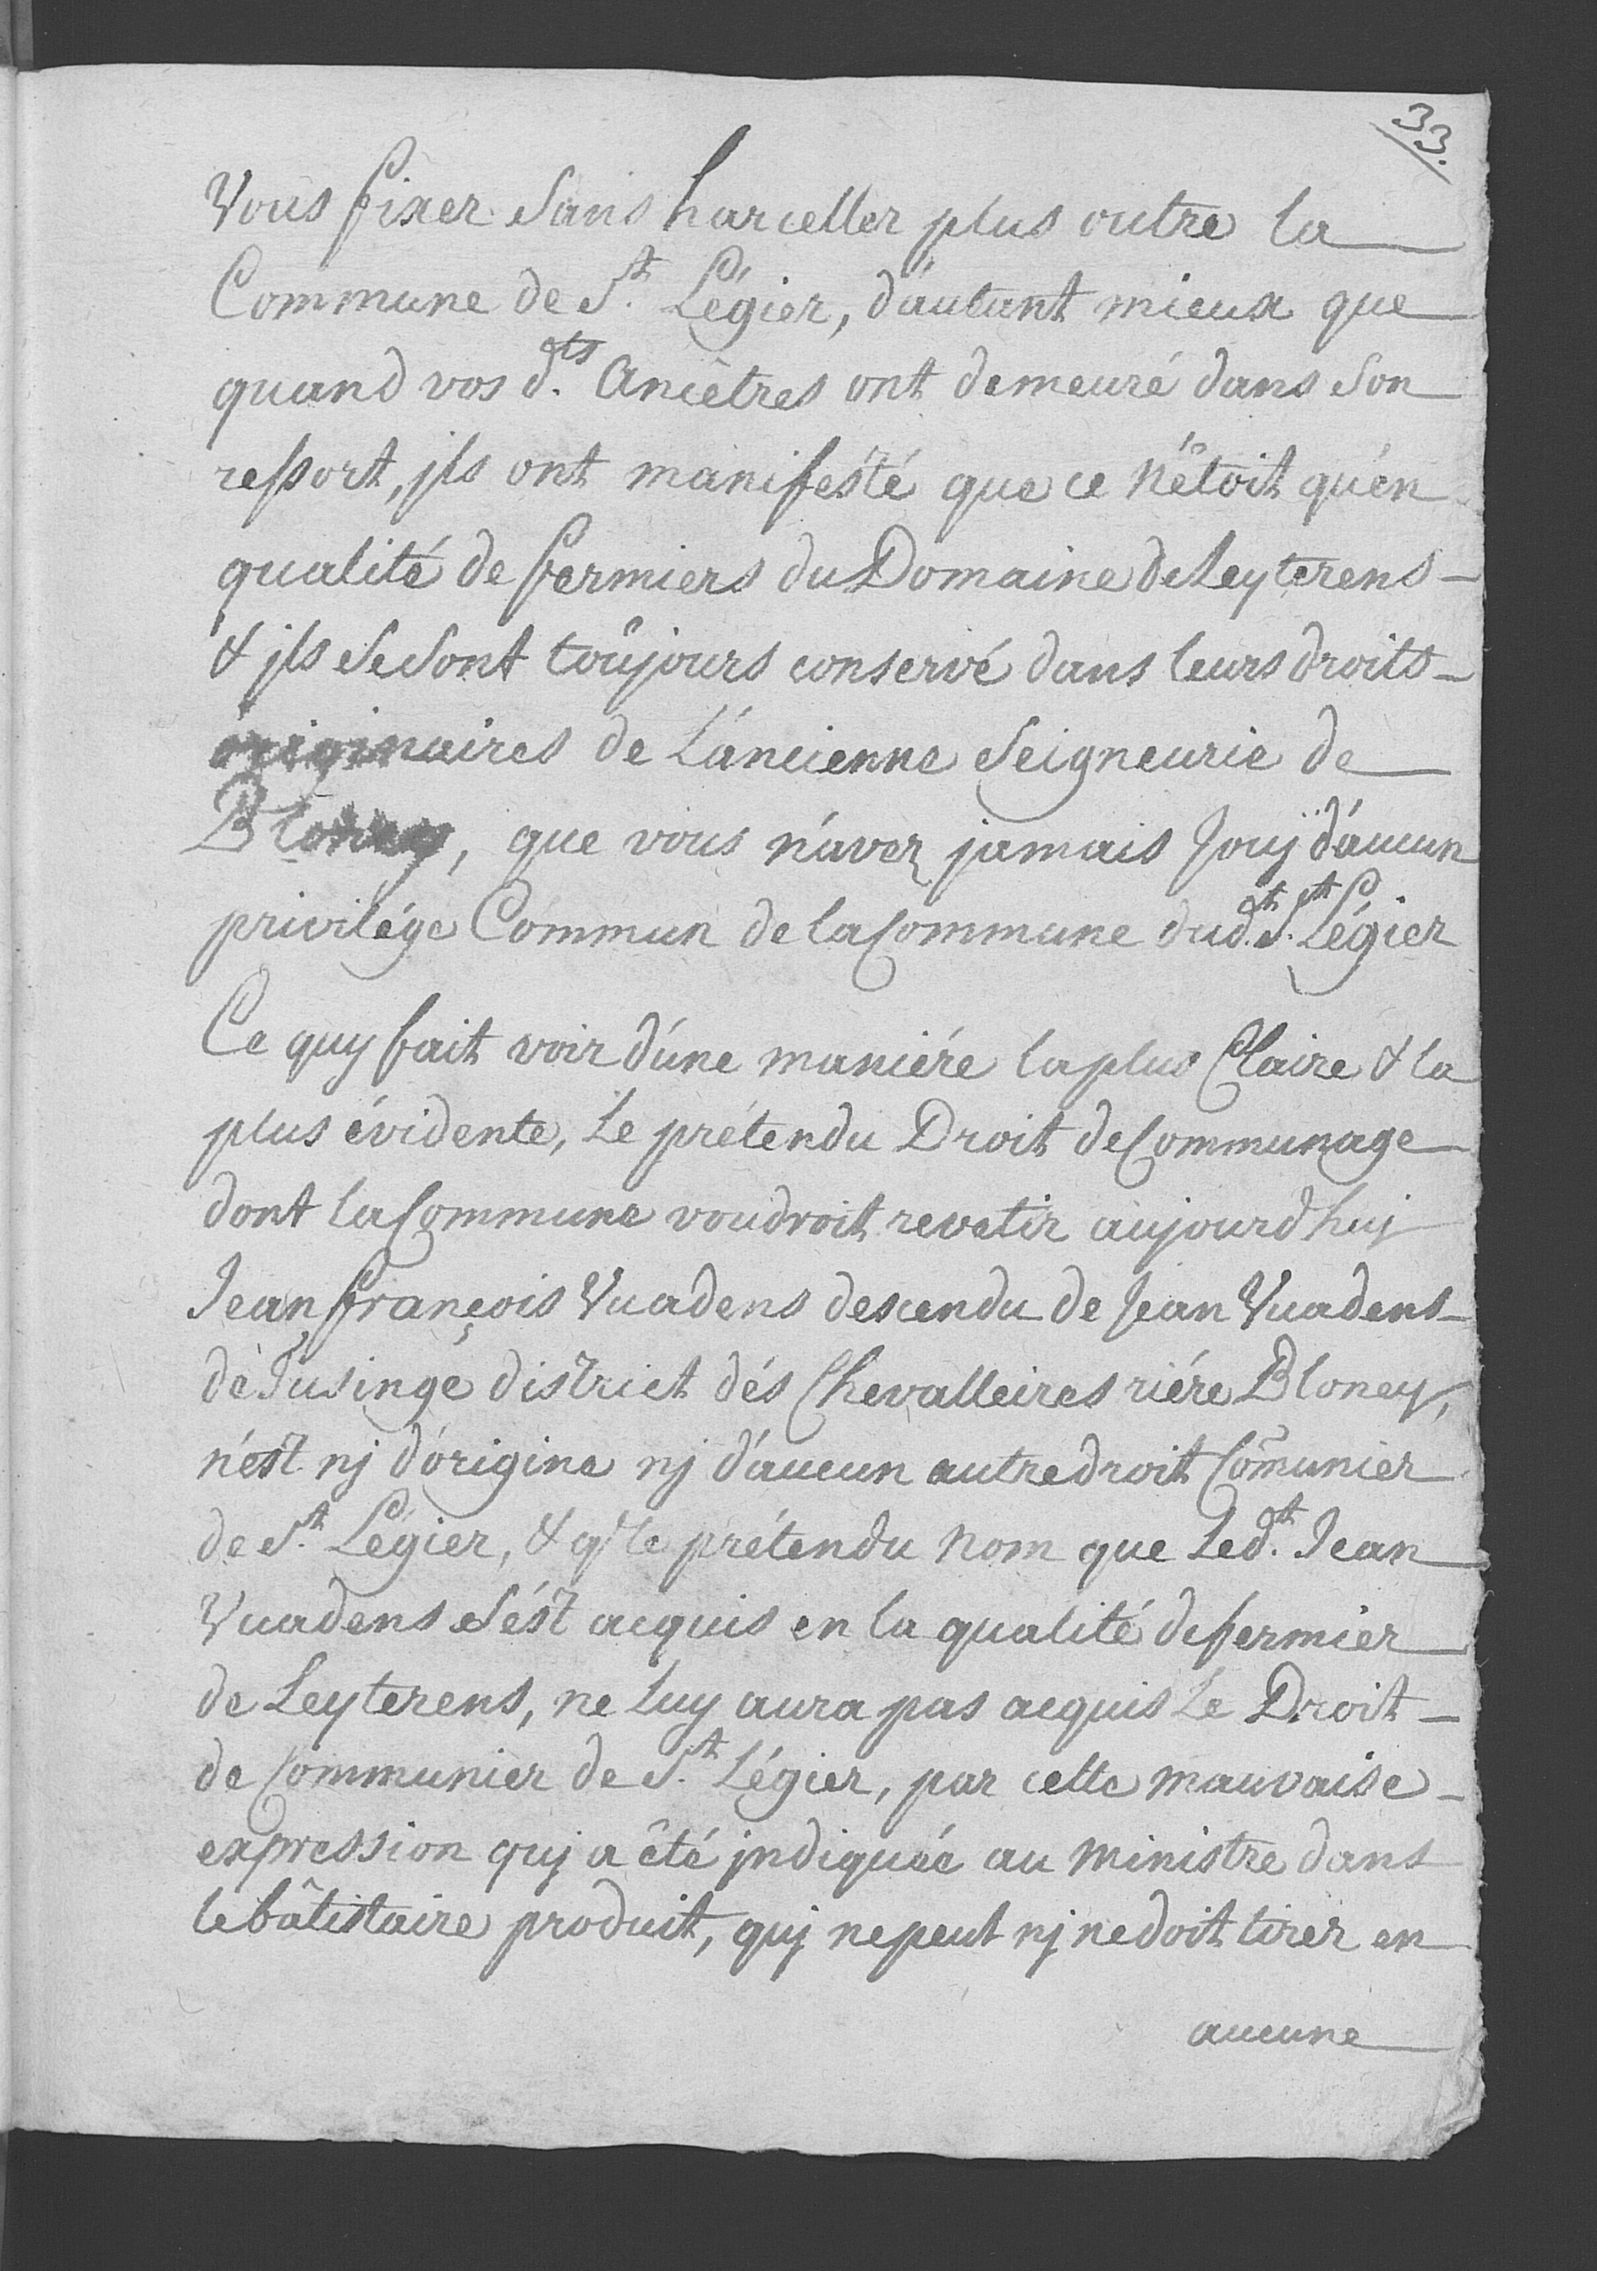 33.
Vous fixer sans harceller plus outre la
Commune de St. Légier, d'autant mieux que
quand vos dts. Ancêtres ont demeuré dans son
ressort, jls ont manifesté que ce n'êtoit qu'en
qualité de fermiers du Domaine de Leyterens
& jls se sont toûjours conservé dans leurs droits
originaires de L'áncienne Seigneurie de
Bloney, que vous n'avez jamais Jouÿ d'aucun
privilége Commun de la Commune dudt. St. Légier
Ce quy fait voir d'une maniére la plus Claire & la
plus évidente, Le prétendu Droit de Communage
dont la Commune voudroit revetir aujourdhuj
Jean françois Vuadens descendu de Jean Vuadens
de Tusinge district dés Chevalleires riére Bloney,
n'est nj d'origine nj d'aucun autre droit Com̃unier
de St. Légier, & qe le prétendu nom que Ledt. Jean
Vuadens s'ést acquis en la qualité de fermier
de Leyterens, ne luy aura pas acquis Le Droit
de Communier de St. Légier, par cette mauvaise
expression quj a êté jndiquée au Ministre dans
le bâtistaire produit, quj ne peut nj ne doit tirer en
aucune